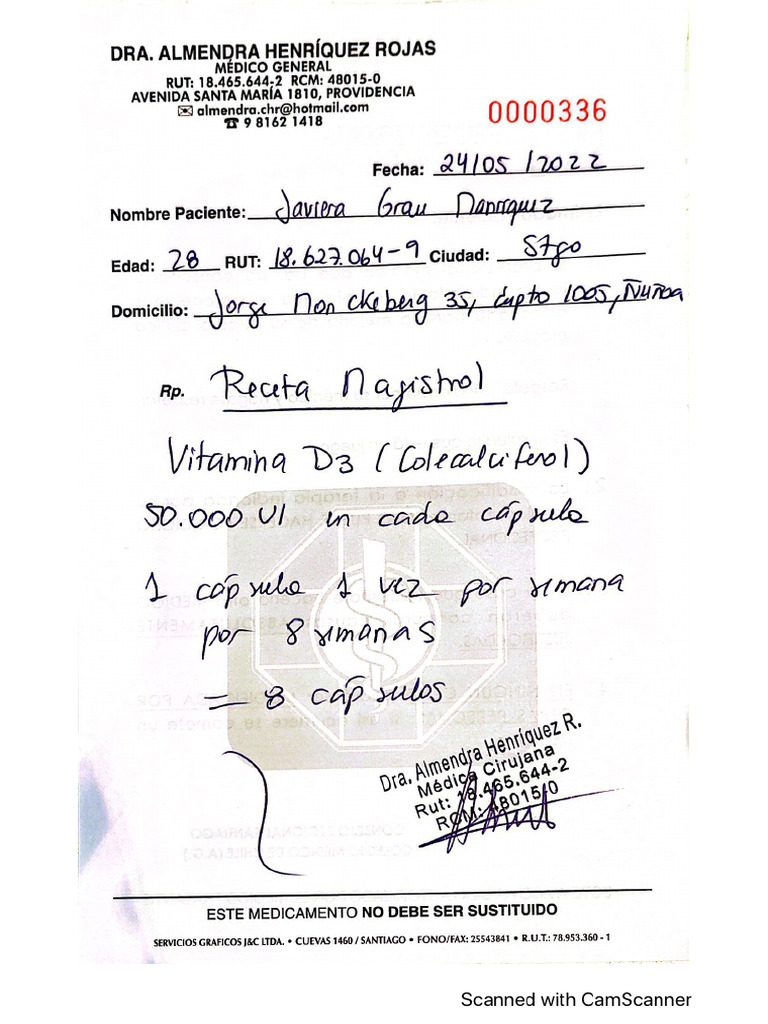 DRA. ALMENDRA HENRÍQUEZ ROJAS
MÉDICO GENERAL
RUT: 18.465.644-2 RCM: 48015-0
AVENIDA SANTA MARÍA 1810, PROVIDENCIA
✉ almendra.chr@hotmail.com
☎ 9 8162 1418
0000336
Fecha: 24/05/2022
Nombre Paciente: Javiera Grau Manrquez
Edad: 28 RUT: 18.627.064-9 Ciudad: STgo
Domicilio: Jorge Monckeberg 35, dpto 1005, Ñuñoa
Rp. Receta Magistral
Vitamina D3 (Colecalciferol)
50.000 UI en cada cápsula
1 cápsula 1 vez por semana
por 8 semanas
= 8 cápsulas
Dra. Almendra Henríquez R.
Médica Cirujana
Rut: 18.465.644-2
RCM: 48015/0
ESTE MEDICAMENTO NO DEBE SER SUSTITUIDO
SERVICIOS GRAFICOS J&C LTDA. • CUEVAS 1460 / SANTIAGO • FONO/FAX: 25543841 • R.U.T.: 78.953.360 - 1
Scanned with CamScanner